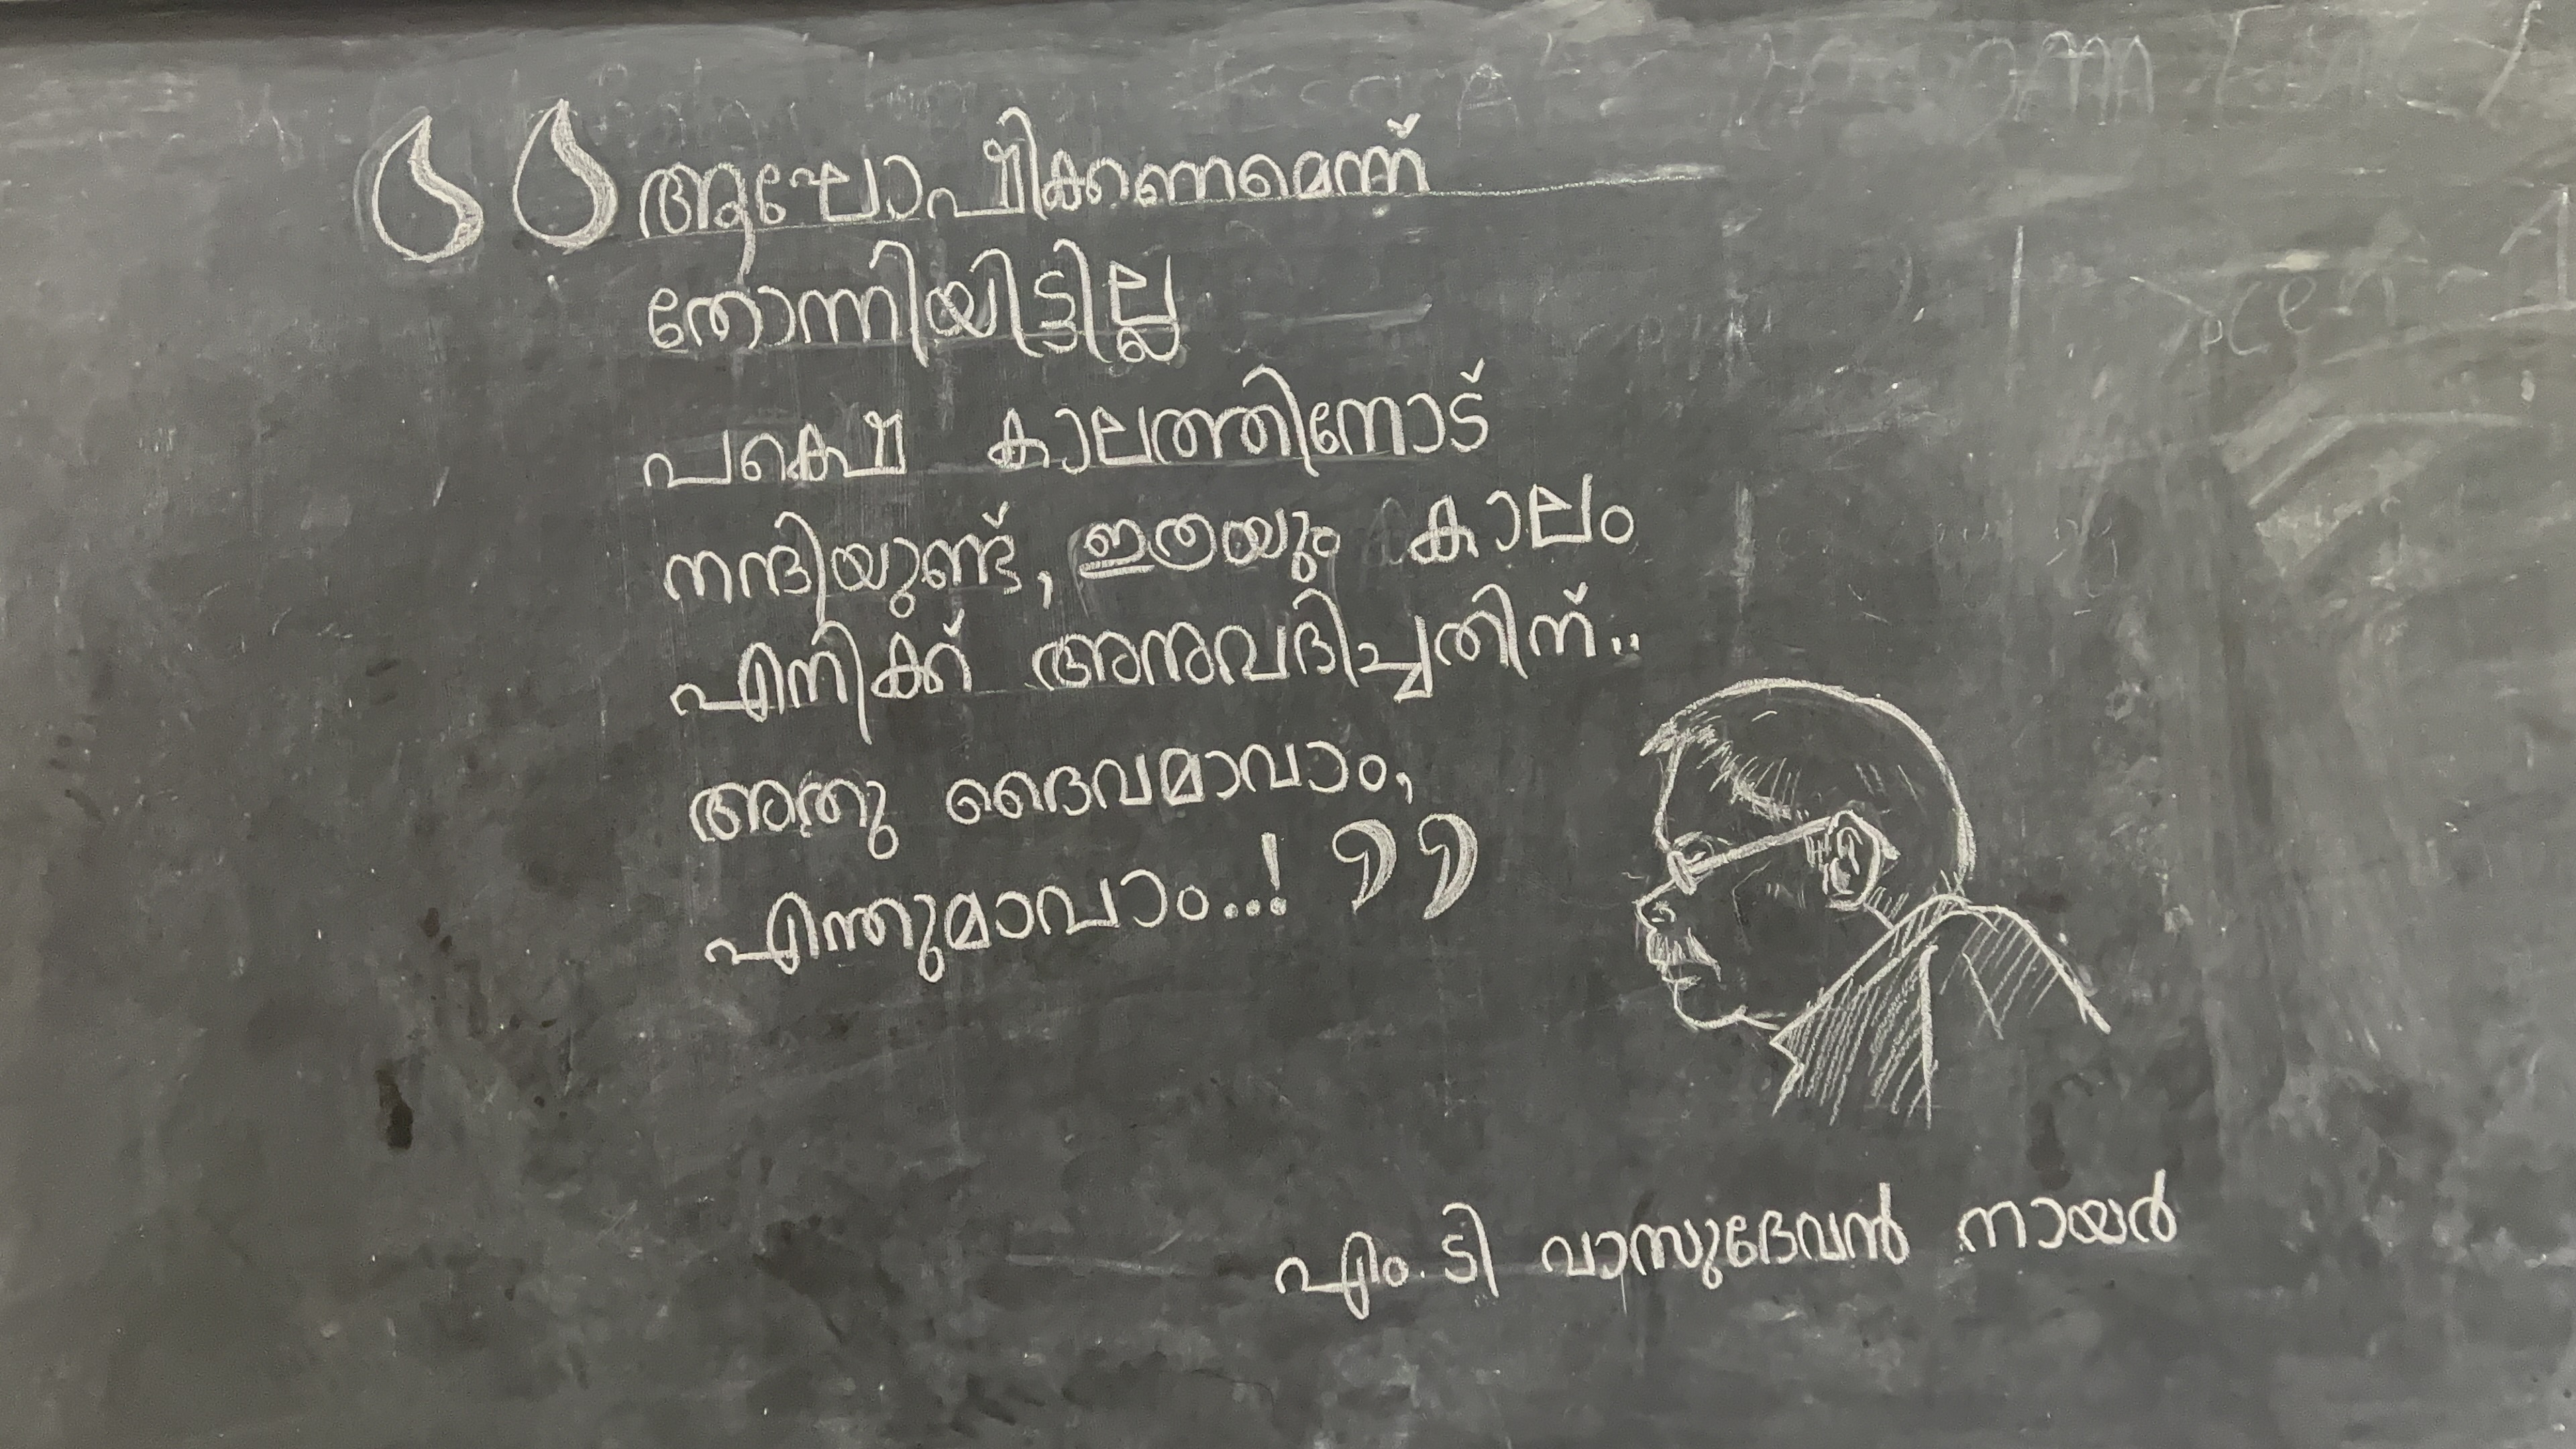 “ആഘോഷിക്കണമെന്ന്
തോന്നിയിട്ടില്ല
പക്ഷെ കാലത്തിനോട്
നന്ദിയുണ്ട്, ഇത്രയും കാലം
എനിക്ക് അനുവദിച്ചതിന്..
അതു ദൈവമാവാം,
എന്തുമാവാം...!”
എം.ടി വാസുദേവൻ നായർ